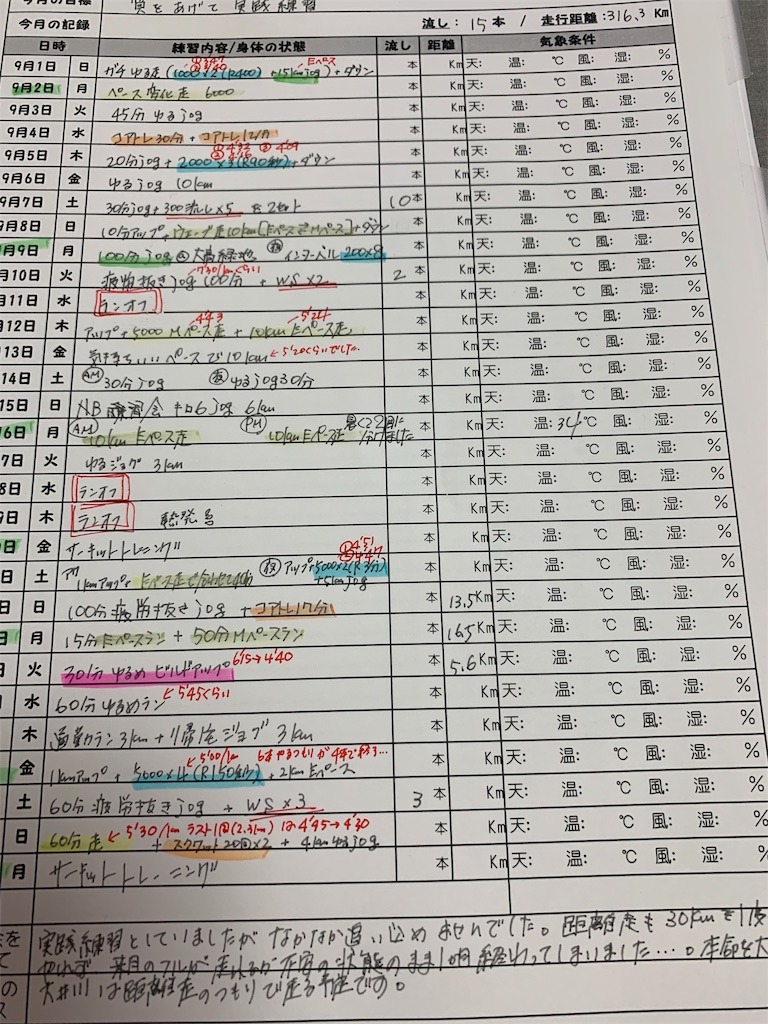 今月の目標 質をあげて 実践練習
今月の記録 流し: 15本 / 走行距離:316.3 Km
日時 練習内容/身体の状態 流し 距離 気象条件
①3'47 ②3'40 Eペース
9月1日 日 ガチゆる走 (1000×2 (R400) +15kmjog) +ダウン 本 Km 天: 温: ℃ 風: 湿: %
9月2日 月 ペース変化走 6000 本 Km 天: 温: ℃ 風: 湿: %
9月3日 火 45分 ゆるjog 本 Km 天: 温: ℃ 風: 湿: %
9月4日 水 コアトレ30分 + コアトレ12分 本 Km 天: 温: ℃ 風: 湿: %
9月5日 木 20分jog + 2000×3(R90秒) +ダウン 本 Km 天: 温: ℃ 風: 湿: %
9月6日 金 ゆるjog 10km 本 Km 天: 温: ℃ 風: 湿: %
9月7日 土 30分jog + 300流し×5 を2セット 10本 Km 天: 温: ℃ 風: 湿: %
9月8日 日 10分アップ + ウェーブ走10km [EペースとMペース] +ダウン 本 Km 天: 温: ℃ 風: 湿: %
月9日 月 100分jog 大高緑地 夜 インターバル 200×8 本 Km 天: 温: ℃ 風: 湿: %
7'30/kmくらい
月10日 火 疲労抜きjog 100分 + WS×2 2本 Km 天: 温: ℃ 風: 湿: %
月11日 水 ランオフ 本 Km 天: 温: ℃ 風: 湿: %
4'43 5'24
月12日 木 アップ + 5000 Mペース走 + 10km Eペース走 本 Km 天: 温: ℃ 風: 湿: %
月13日 金 気持ちいいペースで10km ←5'20くらいでした 本 Km 天: 温: ℃ 風: 湿: %
14日 土 AM 30分jog 夜 ゆるjog30分 本 Km 天: 温: ℃ 風: 湿: %
15日 日 NB練習会 キロ6jog 6km 本 Km 天: 温: ℃ 風: 湿: %
6日 月 AM 10km Eペース走 PM 10km Eペース走 暑くて2回に分けました 本 Km 天: 温:34℃ 風: 湿: %
7日 火 ゆるジョグ 3km 本 Km 天: 温: ℃ 風: 湿: %
8日 水 ランオフ 本 Km 天: 温: ℃ 風: 湿: %
9日 木 ランオフ 本 Km 天: 温: ℃ 風: 湿: %
日 金 サーキットトレーニング 本 Km 天: 温: ℃ 風: 湿: %
①4'51 ②4'47
日 土 AM 1kmアップ+ Eペース走 夜 アップ+5000×2(R3分) +5kmjog 本 Km 天: 温: ℃ 風: 湿: %
日 日 100分 疲労抜きjog + コアトレ17分 本 13.5Km 天: 温: ℃ 風: 湿: %
日 月 15分Eペースラン + 50分Mペースラン 本 16.5Km 天: 温: ℃ 風: 湿: %
日 火 30分 ゆるめ ビルドアップ 6'15→4'40 本 5.6Km 天: 温: ℃ 風: 湿: %
日 水 60分 ゆるめラン ←5'45くらい 本 Km 天: 温: ℃ 風: 湿: %
木 通勤ラン3km + 帰宅ジョグ 3km 本 Km 天: 温: ℃ 風: 湿: %
←5'00/km 6本やるつもりが4本で終了…
金 1kmアップ + 5000×4(R150秒) +2km Eペース 本 Km 天: 温: ℃ 風: 湿: %
土 60分 疲労抜きjog + WS×3 3本 Km 天: 温: ℃ 風: 湿: %
日 60分走 ←5'30/km ラスト1周(2.3km)は4'45→4'30
+ スクワット20回×2 + 4kmゆるjog 本 Km 天: 温: ℃ 風: 湿: %
月 サーキットトレーニング 本 Km 天: 温: ℃ 風: 湿: %
実践練習としていましたがなかなか追い込めませんでした。距離走も30kmを1度
やれず、来月のフルが走れるか不安の状態のまま1ヶ月経わってしまいました…。本命を大
大井川は距離走のつもりで走る予定です。